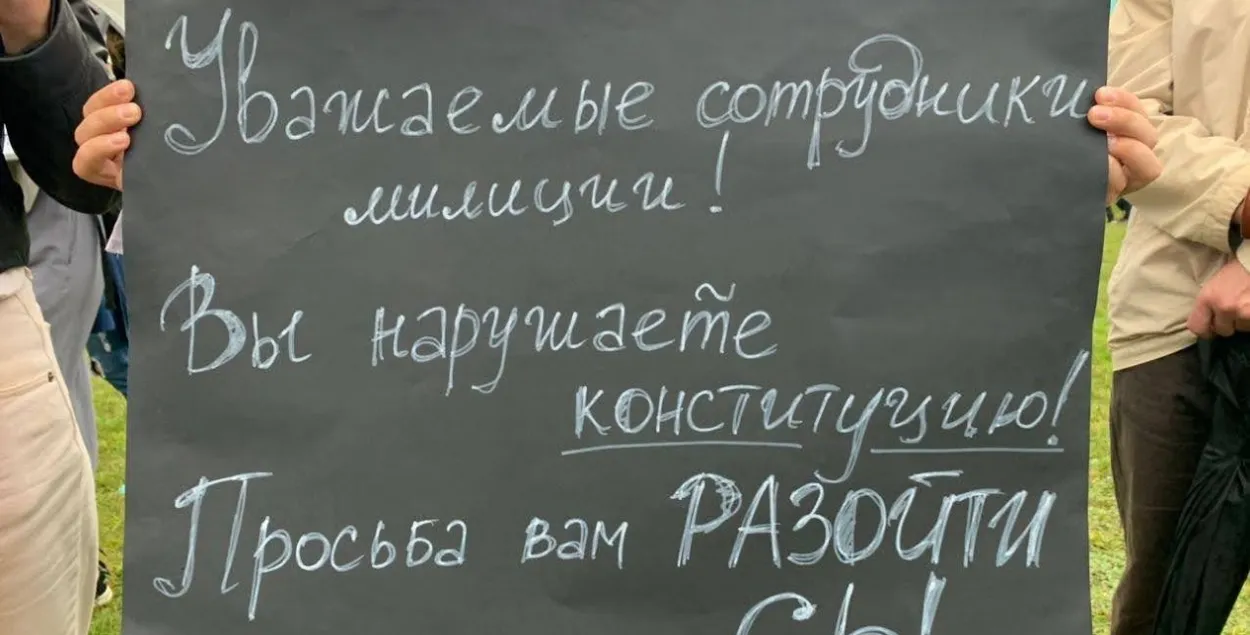 Уважаемые сотрудники
милиции!
Вы нарушаете
конституцию!
Просьба вам РАЗОЙТИ
СЬ!